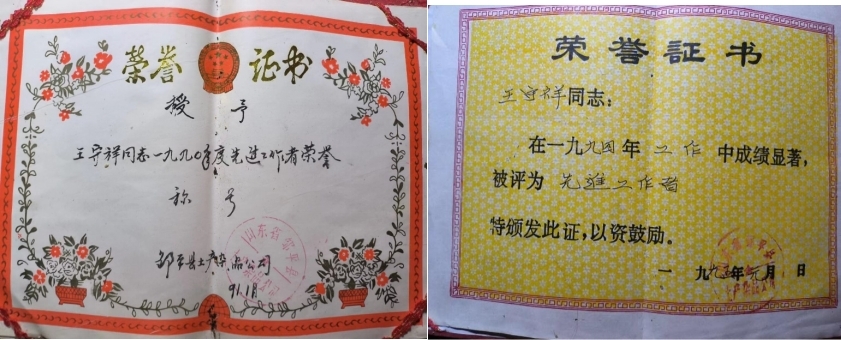 荣誉证书
授予
王守祥同志一九九〇年度先进工作者荣誉
称号
邹平县土产杂品公司
91.1.8
山东省邹平县
荣誉証书
王守祥同志:
在一九九四年 工作 中成绩显著,
被评为 先进工作者
特颁发此证,以资鼓励。
一九九五年元月 日